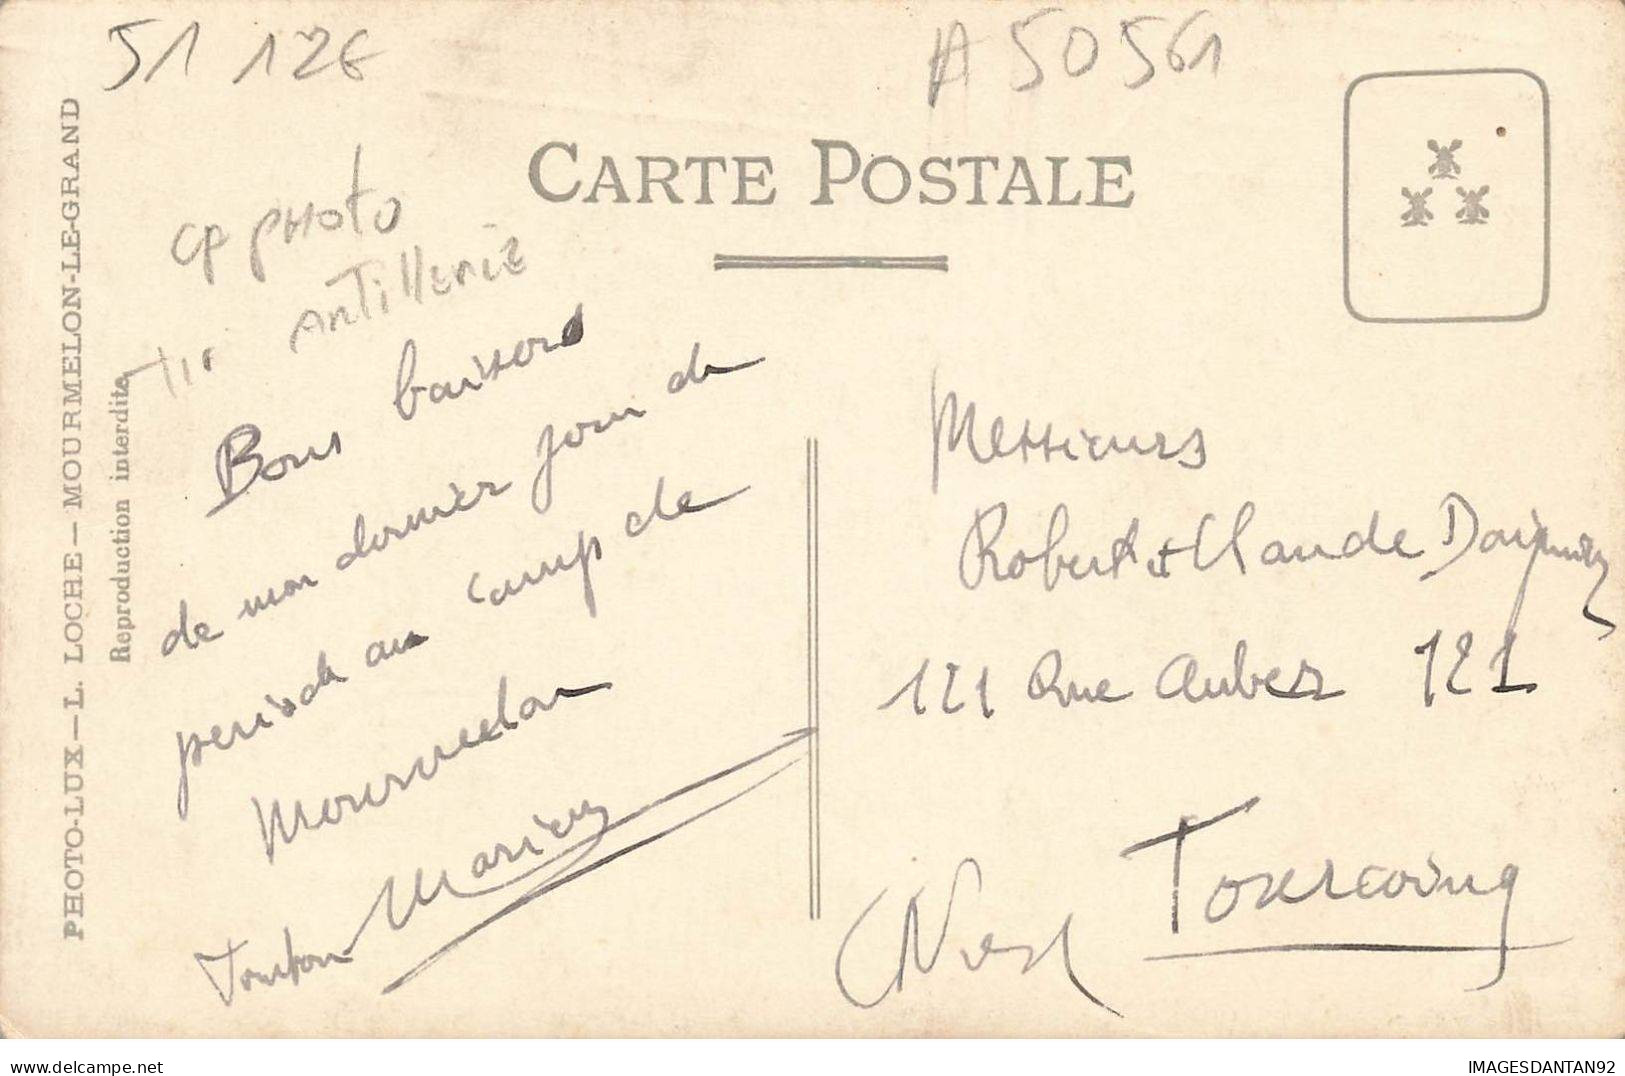 51 12€
A 50561
CARTE POSTALE
PHOTO-LUX — L. LOCHE — MOURMELON-LE-GRAND
Reproduction interdite
CP PHOTO
Tir ARTillerie
Bons baisers
de mon dernier jour de
période au camp de
Mourmelon
Tonton Marius
Messieurs
Robert et Claude
121 Rue Auber 121
Tourcoing
(Nord
IMAGESDANTAN92